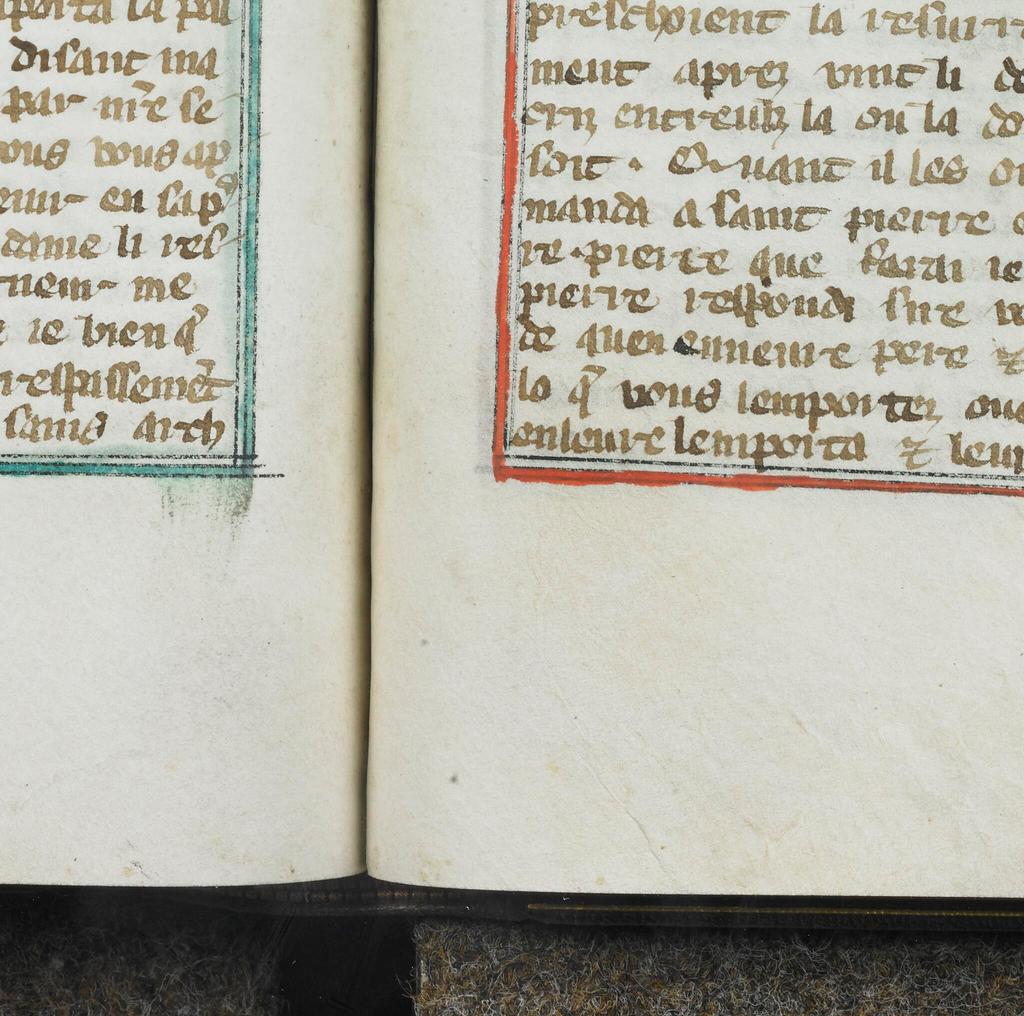 porta la pal
disant ma
par mr̃e se
vous vous ap
enir en sap
dame li res
me
ie bien q̃
respissemẽt
sains arch
preschoient la resurr
ment aprez vint li
entreulz la ou la do
soit · Quant il les
manda a saint pierre
re · pierre que ferai ie
pierre respondi sire
de quen enmeure pere ⁊
lo q̃ vous lemportez
enleure lemporta ⁊ leur